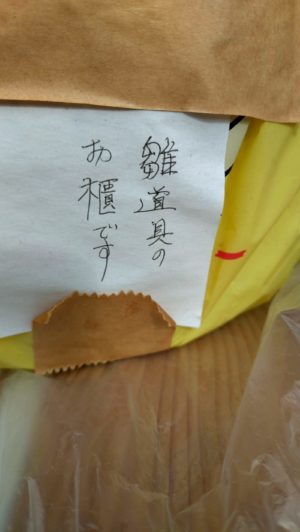 雛道具の
お櫃です